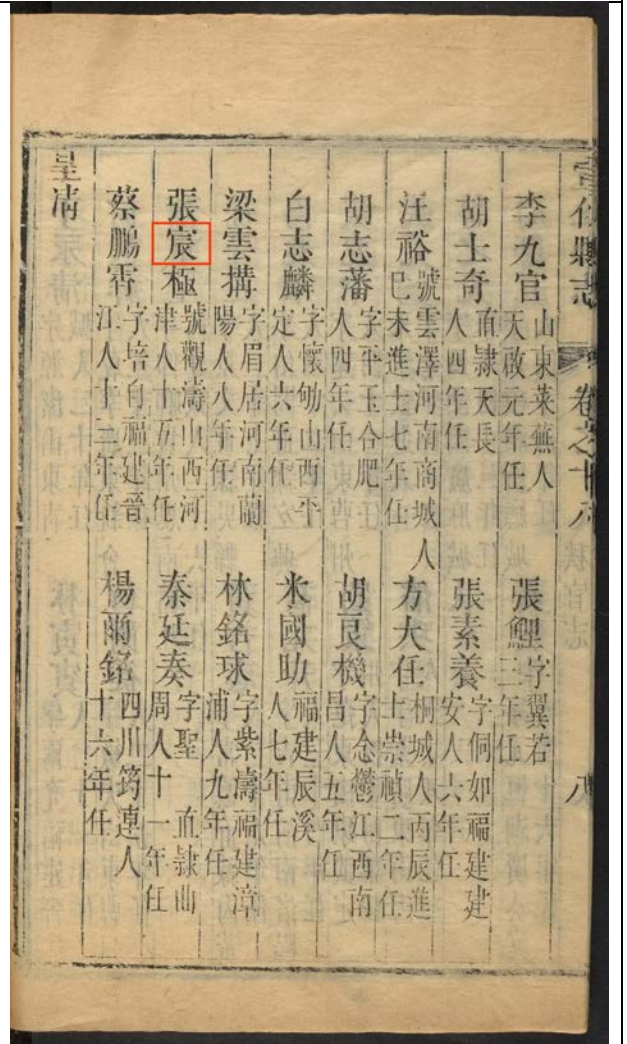 宣化縣志
卷之十八
八
李九官 山東萊蕪人
天啟元年任
張鯉 字翼若
三年任
胡士奇 直隸天長
人四年任
張素養 字侗如福建建
安人六年任
汪裕 號雲澤河南商城人
己未進士七年任
方大任 桐城人丙辰進
士崇禎二年任
胡志藩 字平玉合肥
人四年任
胡良機 字念䰟江西南
昌人五年任
白志麟 字懷劬山西平
定人六年任
米國助 福建辰溪
人七年任
梁雲搆 字眉居河南蘭
陽人八年任
林銘球 字紫濤福建漳
浦人九年任
張宸極 號觀濤山西河
津人十五年任
秦廷奏 字聖 直隸曲
周人十一年任
蔡鵬霄 字培自福建晉
江人十二年任
楊爾銘 四川筠連人
十六年任
皇清